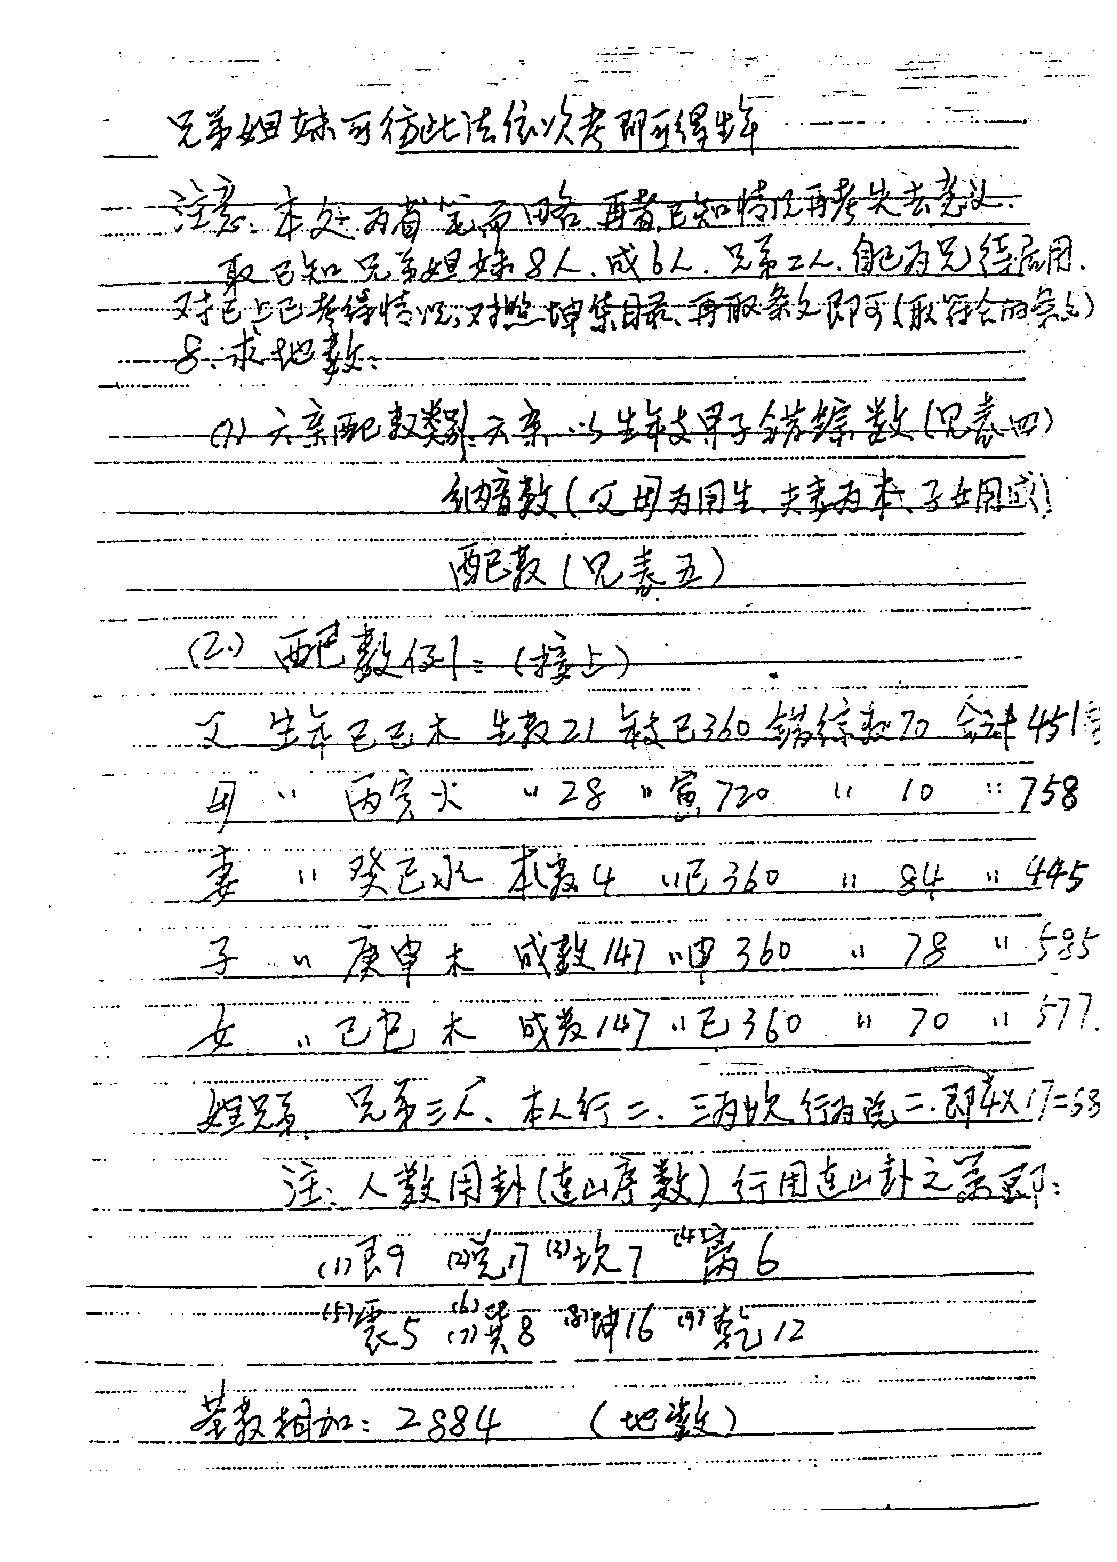 兄弟姐妹可仿此法依次考即可得生年
注意:本处为省笔而略,再者已知情况再考失去意义.
取已知兄弟姐妹8人.成6人.兄弟二人.自己为兄待启用.
对已上已考得情况,对照坤集目录,再取条文即可(取符合的条文)
8.求地数:
(1)六亲配数类别:六亲以生年支甲子错综数(见表四)
纳音数(父母为用生.夫妻为本.子女用成)
配数(见表五)
(2.)配数例:(接上)
父 生年己巳木 生数21 年支巳360 错综数70 合计451
母 〃 丙寅火 〃28 〃寅720 〃 10 〃758
妻 〃 癸巳水 本数4 〃巳360 〃 84 〃 445
子 〃 庚申木 成数147 〃申360 〃 78 〃 585
女 〃 己巳木 成数147 〃巳360 〃 70 〃 577.
兄弟三人、本人行二、三为坎,行为兑二.即4×17=68
注:人数用卦(连山序数)行用连山卦之策即:
(1)艮9 (2)兑17 (3)坎7 (4)离6
(5)震5 (6)(7)巽8 (8)坤16 (9)乾12
基数相加:2884 (地数)